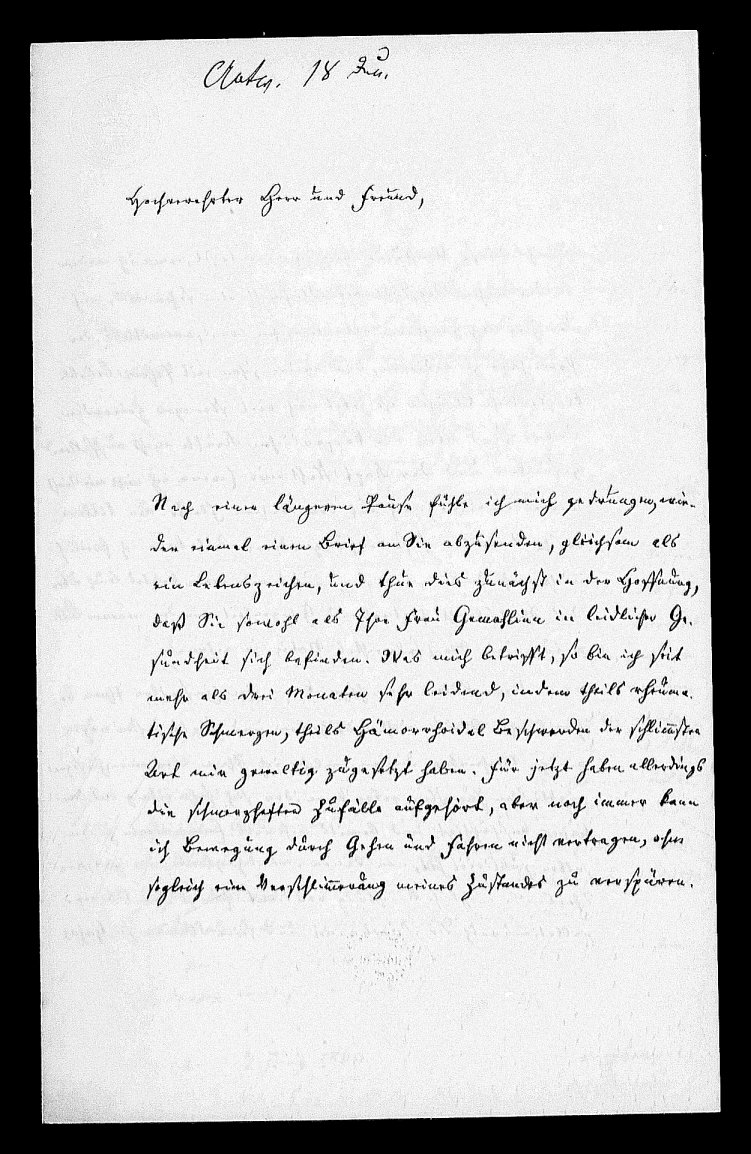 18
Hochverehrter Herr und Freund,
Nach einer längeren Pause fühle ich mich gedrungen, wie-
der einmal einen Brief an Sie abzusenden, gleichsam als
ein Lebenszeichen, und thue dies zunächst in der Hoffnung,
daß Sie sowohl als Ihre Frau Gemahlinn in leidlicher Ge-
sundheit sich befinden. Was mich betrifft, so bin ich seit
mehr als drei Monaten sehr leidend, indem theils rheuma-
tische Schmerzen, theils Hämorrhoidal Beschwerden der schlimmsten
Art mir gewaltig zugesetzt haben. Für jetzt haben allerdings
die schmerzhaften Zufälle aufgehört, aber noch immer kann
ich Bewegung durch Gehen und Fahren nicht vertragen, ohne
sogleich eine Verschlimmerung meines Zustandes zu verspüren.